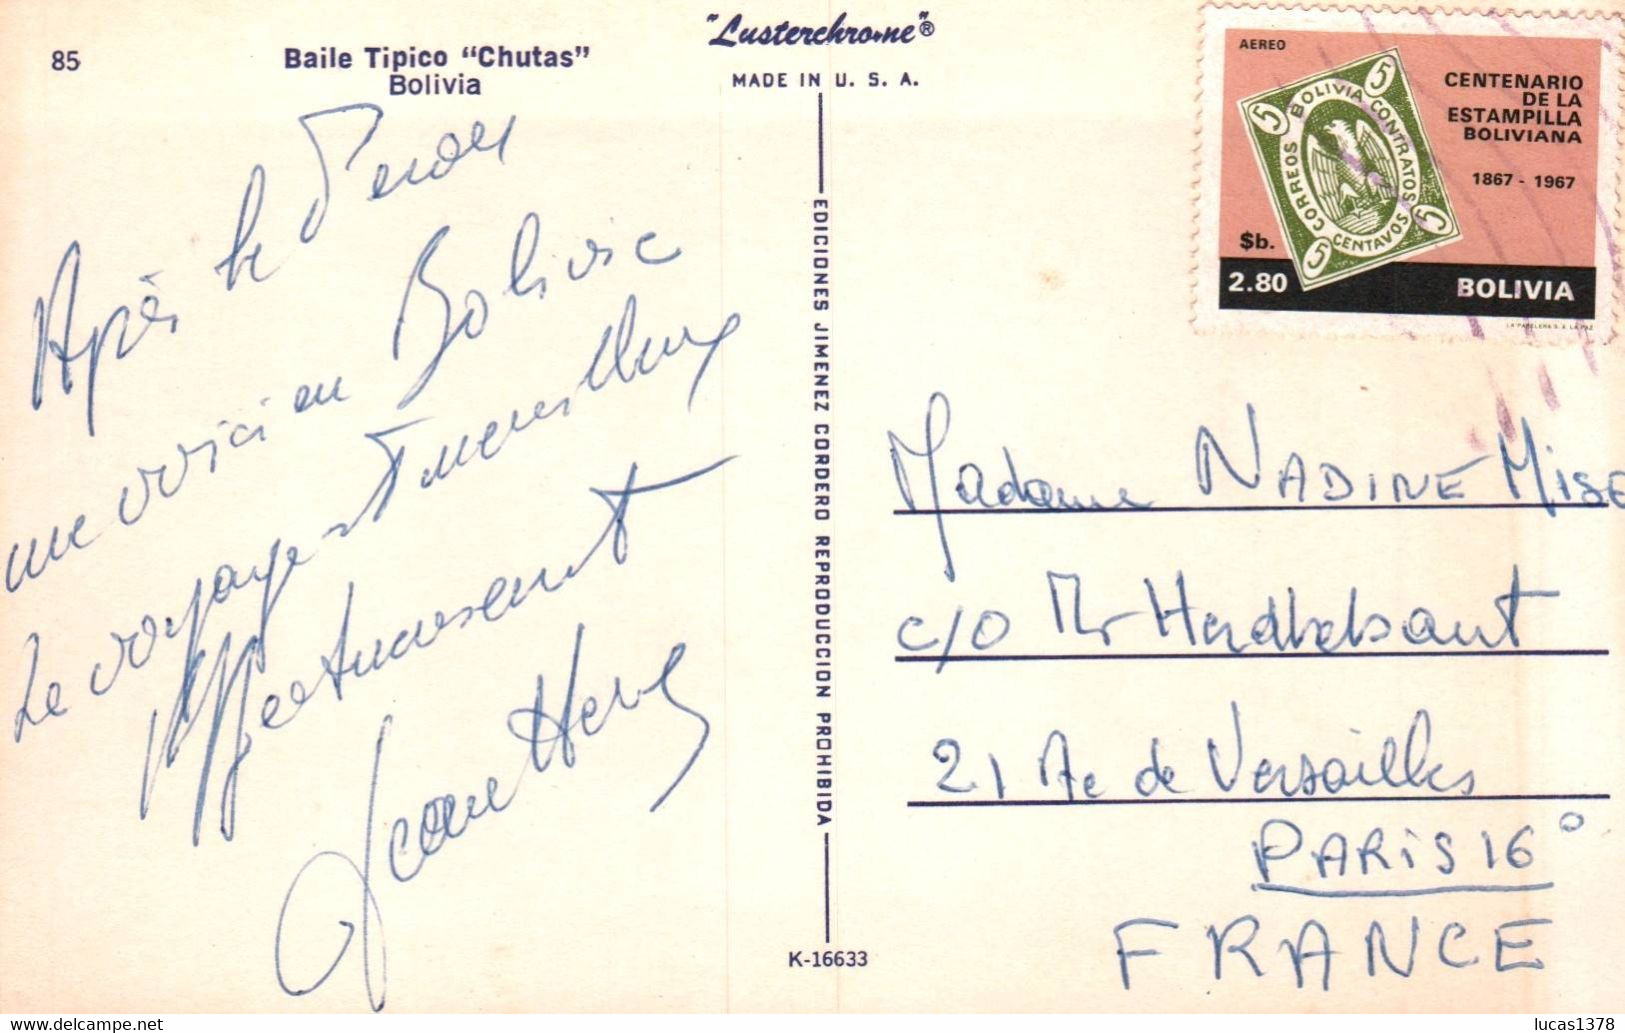 85
Baile Tipico “Chutas”
Bolivia
Après le Perou
me voici en Bolivie
Le voyage est merveilleux
Affectueusement
Jean Hervé
"Lusterchrome"®
MADE IN U. S. A.
EDICIONES JIMENEZ CORDERO REPRODUCCION PROHIBIDA
K-16633
AEREO
CENTENARIO
DE LA
ESTAMPILLA
BOLIVIANA
1867 - 1967
5 5 5 5
CORREOS BOLIVIA CONTRATOS
CENTAVOS
$b.
2.80 BOLIVIA
LA PAPELERA S. A. LA PAZ
Madame NADINE MISE
c/o Mr
21 Ave de Versailles
PARIS 16°
FRANCE
lucas1378